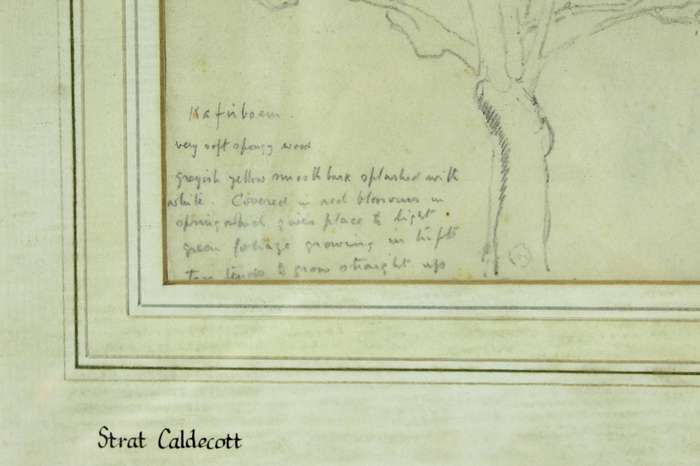 Kafirboem.
very soft spongy wood
greyish yellow smooth bark splashed with
white. Covered in red blossoms in
spring and gives place to light
green foliage growing in tufts
to grow straight up
Strat Caldecott